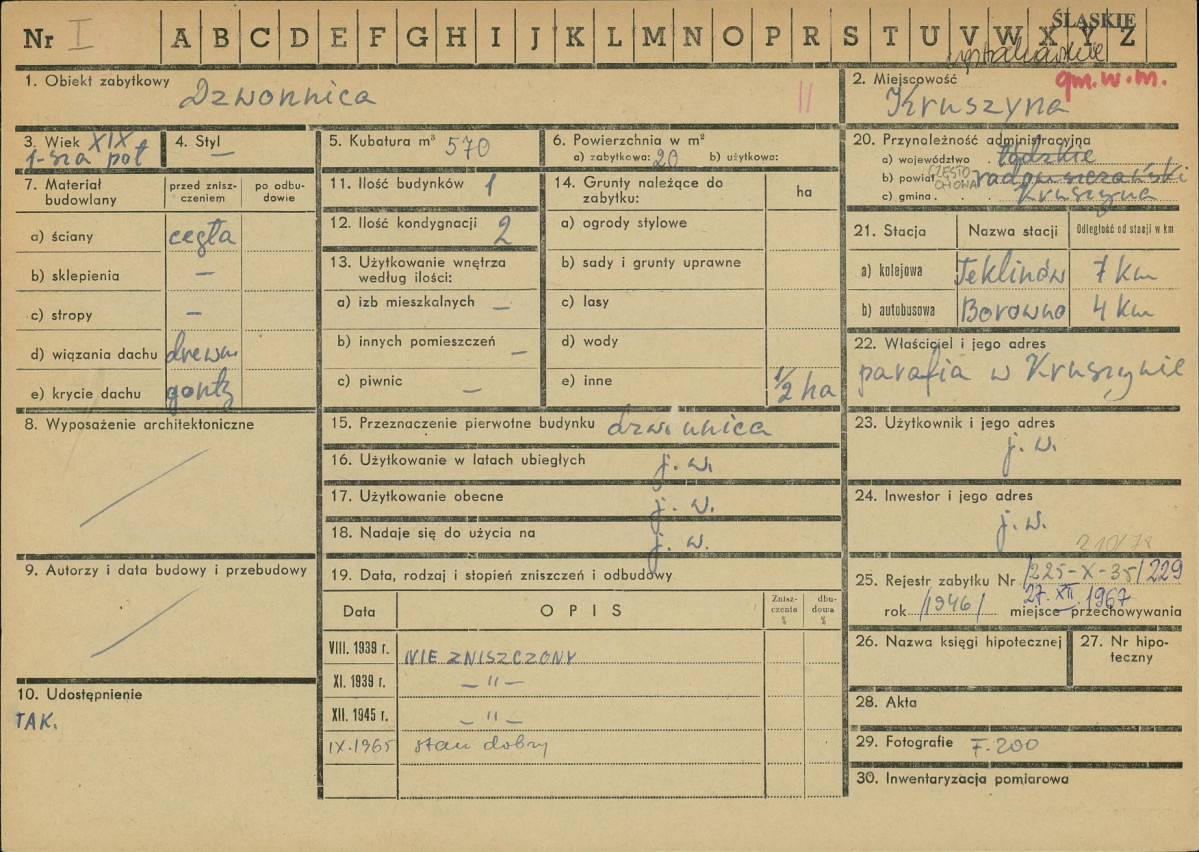 Nr I A B C D E F G H I J K L M N O P R S T U V W X Y Z
ŚLĄSKIE
1. Obiekt zabytkowy
Dzwonnica
II
2. Miejscowość
gm. w. m.
Kruszyna
3. Wiek XIX
1-sza poł
4. Styl —
5. Kubatura m³ 570
6. Powierzchnia w m²
a) zabytkowa: 20 b) użytkowa:
20. Przynależność administracyjna
a) województwo łódzkie
b) powiat CZĘSTOCHOWA radomszczański
c) gmina Kruszyna
7. Materiał budowlany
przed zniszczeniem
po odbudowie
a) ściany cegła
b) sklepienia —
c) stropy —
d) wiązania dachu drewn
e) krycie dachu gonty
11. Ilość budynków 1
12. Ilość kondygnacji 2
13. Użytkowanie wnętrza
według ilości:
a) izb mieszkalnych —
b) innych pomieszczeń —
c) piwnic —
14. Grunty należące do
zabytku:
ha
a) ogrody stylowe
b) sady i grunty uprawne
c) lasy
d) wody
e) inne 1/2 ha
21. Stacja Nazwa stacji Odległość od stacji w km
a) kolejowa Teklinów 7 km
b) autobusowa Borowno 4 km
22. Właściciel i jego adres
parafia w Kruszynie
8. Wyposażenie architektoniczne
15. Przeznaczenie pierwotne budynku dzwonnica
16. Użytkowanie w latach ubiegłych j. w.
17. Użytkowanie obecne j. w.
18. Nadaje się do użycia na j. w.
23. Użytkownik i jego adres
j. w.
24. Inwestor i jego adres
j. w.
9. Autorzy i data budowy i przebudowy
19. Data, rodzaj i stopień zniszczeń i odbudowy
Data OPIS Zniszczenia % dbudowa %
VIII. 1939 r. NIE ZNISZCZONY
XI. 1939 r. — " —
XII. 1945 r. — " —
IX.1965 stan dobry
210/78
25. Rejestr zabytku Nr /225-X-35/229
27. XII. 1967
rok /1946/ miejsce przechowywania
26. Nazwa księgi hipotecznej
27. Nr hipoteczny
10. Udostępnienie
TAK.
28. Akta
29. Fotografie F. 200
30. Inwentaryzacja pomiarowa